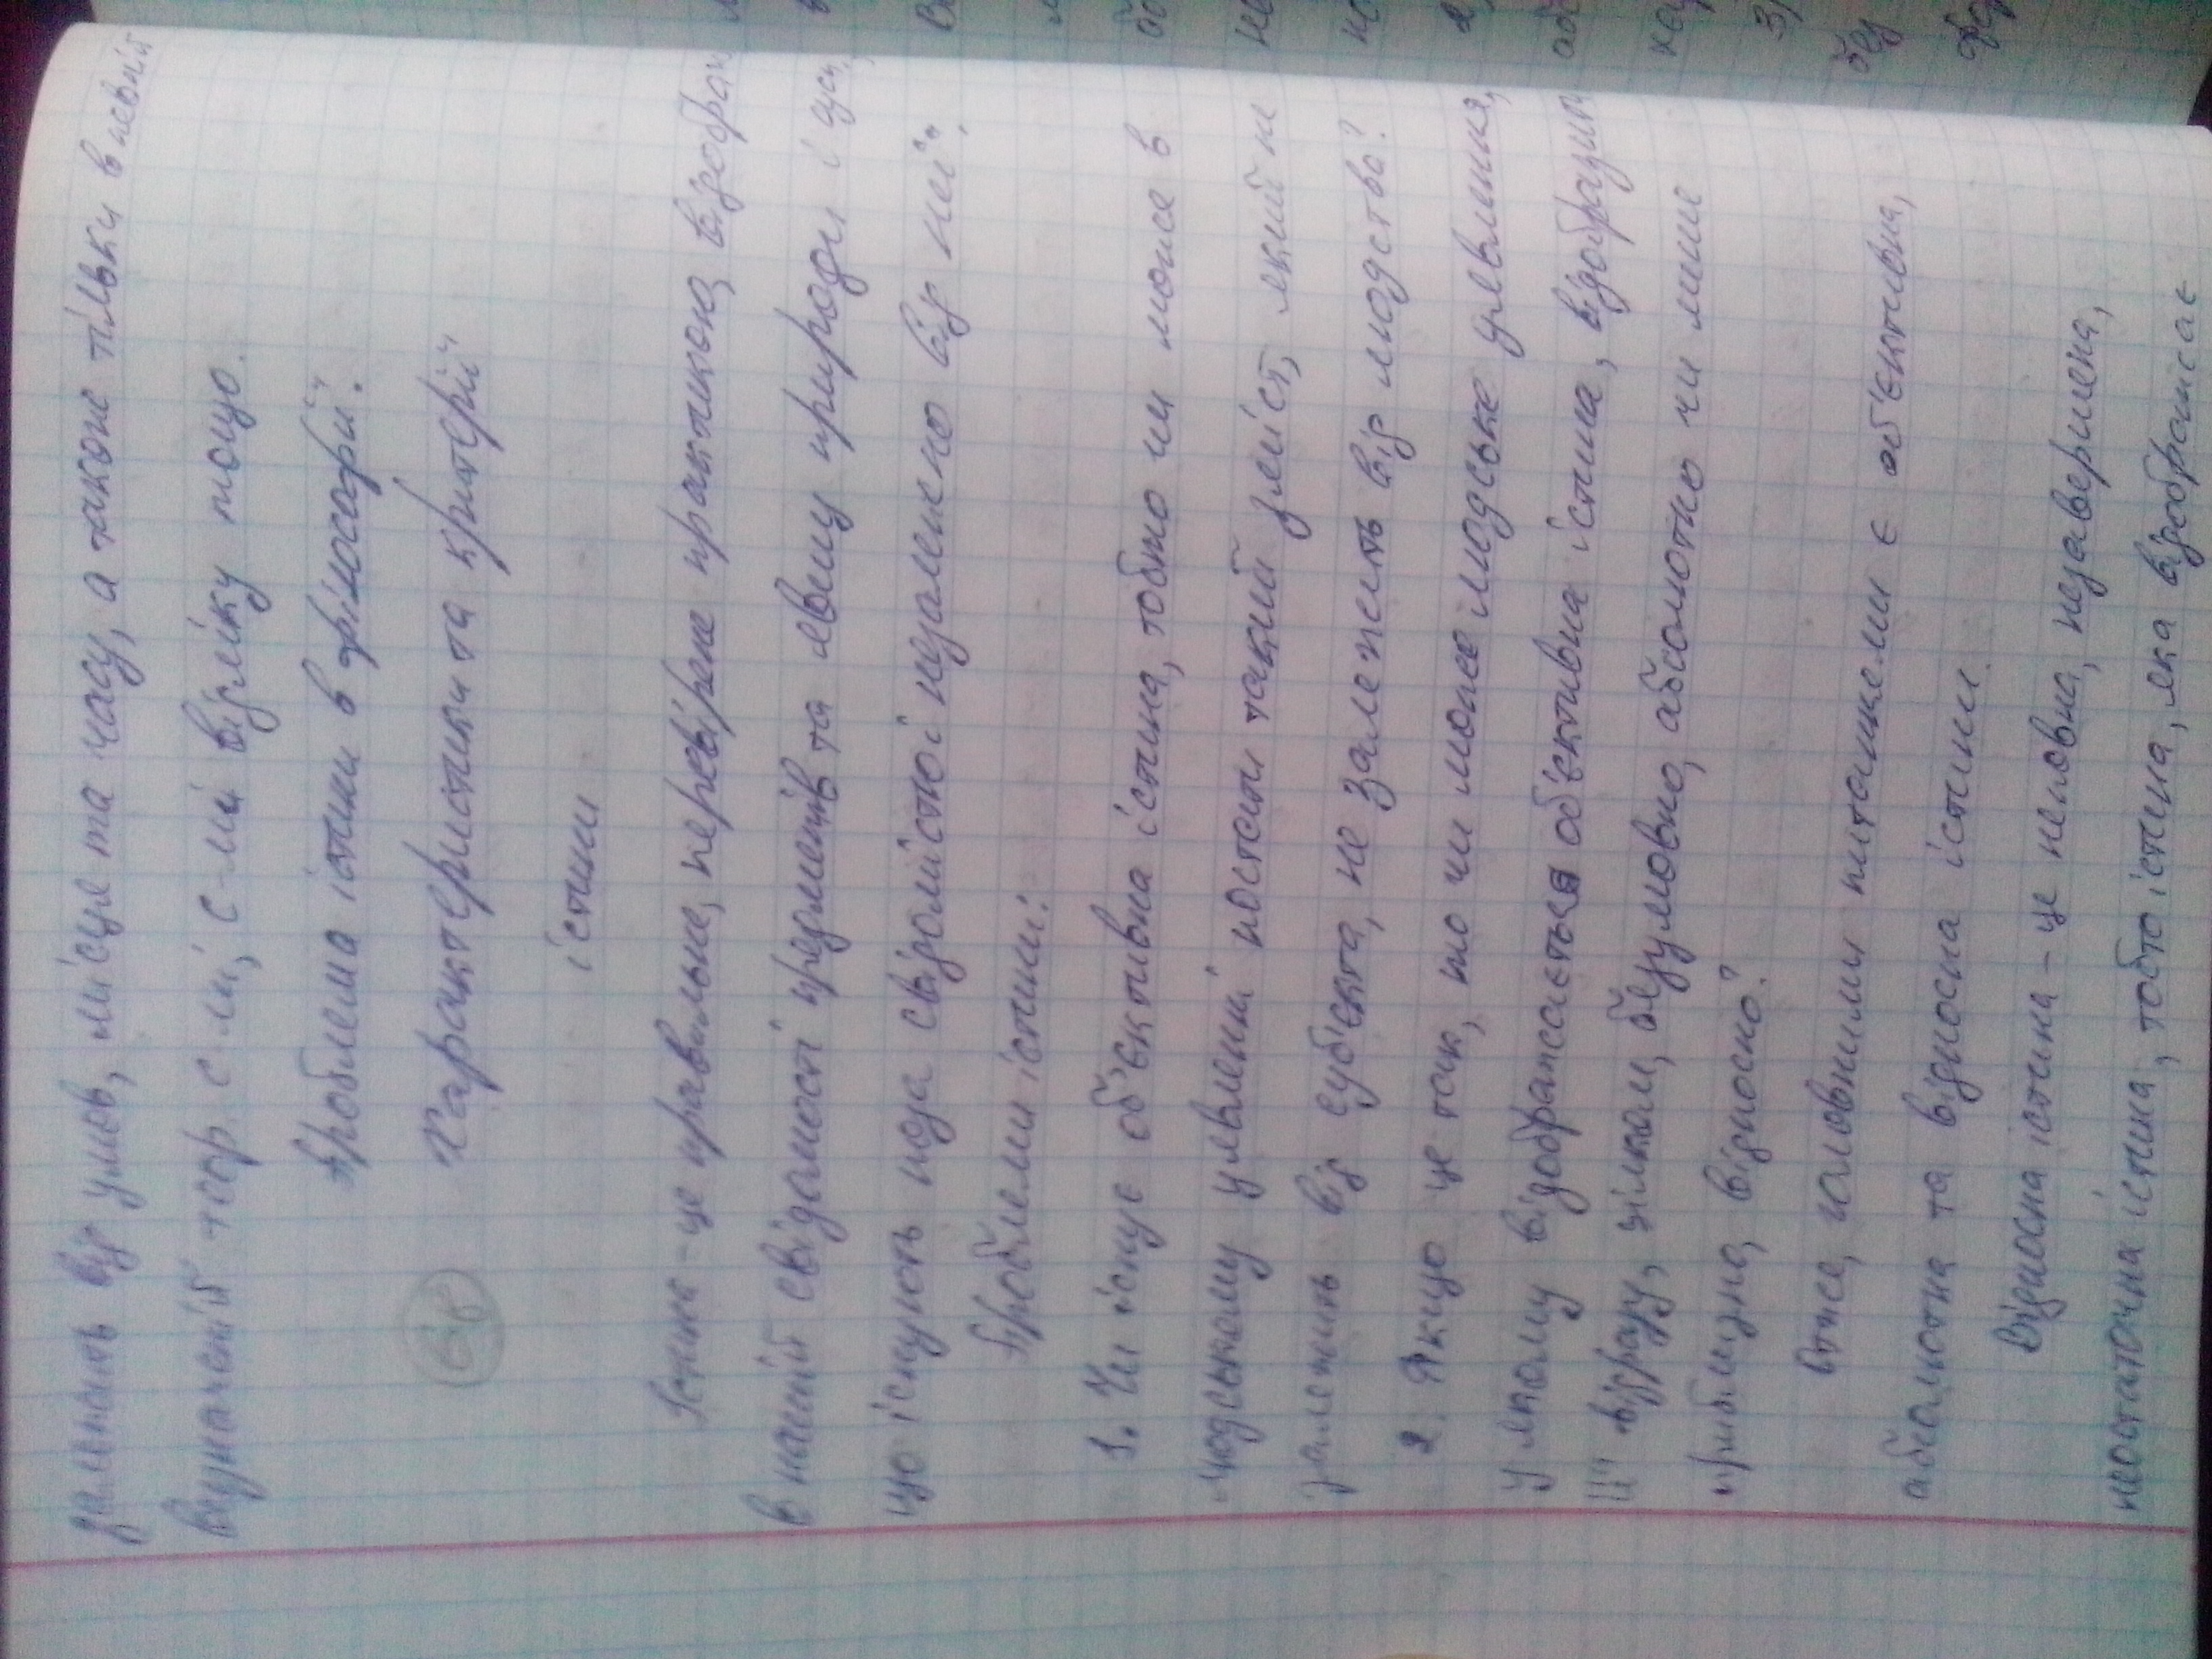 залежить від умов, місця та часу, а також тільки в певній
визначеній теор. с-мі, с-мі відліку тощо.
Проблема істини в філософії.
Характеристики та критерії
істини
Істина - це правильне, перевірене практикою, відображ
в нашій свідомості предметів та явищ природи і сусп.,
що існують поза свідомістю і незалежно від неї.
Проблеми істини:
1. Чи існує об'єктивна істина, тобто чи може в
людському уявленні постати такий зміст, який не
залежить від суб'єкта, не залежить від людства?
2. Якщо це так, то чи може людське уявлення,
у якому відображається об'єктивна істина, відобразити
її відразу, цілком, безумовно, абсолютно чи лише
приблизно, відносно?
Отже, головними питаннями є об'єктивна,
абсолютна та відносна істини.
Відносна істина - це неповна, незавершена,
неостаточна істина, тобто істина, яка відображає